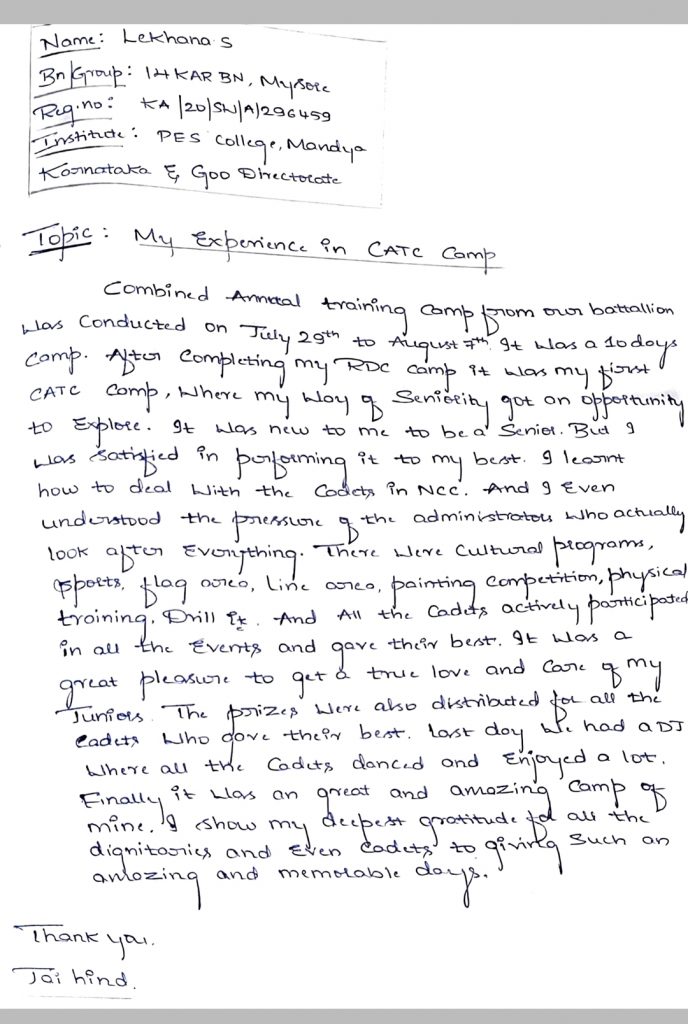 Name: Lekhana S
Bn/Group: 14 KAR BN, Mysore
Reg.no: KA/20/SW/A/296459
Institute: PES College, Mandya
Karnataka & Goa Directorate
Topic: My Experience in CATC Camp
Combined Annual training Camp from our battallion
was Conducted on July 29th to August 7th. It was a 10 days
Camp. After Completing my RDC Camp it was my first
CATC Camp, where my way of Seniority got an opportunity
to Explore. It was new to me to be a Senior. But I
was satisfied in performing it to my best. I learnt
how to deal with the Cadets in NCC. And I Even
understood the pressure of the administrators who actually
look after Everything. There were Cultural programs,
sports, flag area, Line area, painting Competition, physical
training, Drill. And All the Cadets actively participated
in all the Events and gave their best. It was a
great pleasure to get a true love and Care of my
Juniors. The prizes were also distributed for all the
Cadets who gave their best. last day we had a DJ
where all the Cadets danced and Enjoyed a lot.
Finally it was an great and amazing Camp of
mine. I show my deepest gratitude for all the
dignitaries and Even Cadets to giving such an
amazing and memorable days.
Thank you.
Jai hind.